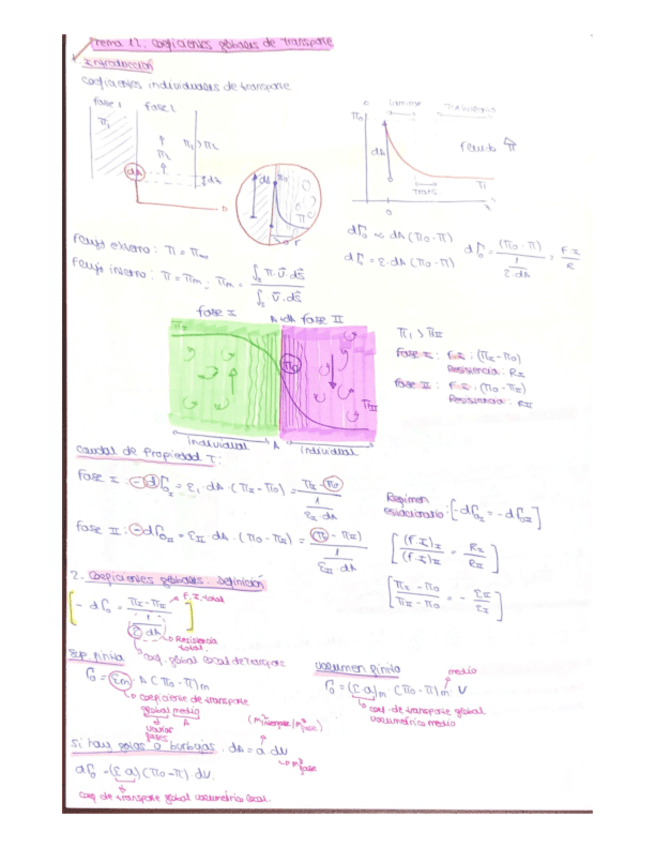 Tema 12. Coeficientes globales de transporte
1. Introducción
Coeficientes individuales de transporte
fase 1 fase 2
Π1
Π1 > Π2
Π2
dA
dz
dA Π0
Π
r
0 laminar Turbulento
Π0
dA
Fluido Π
Trans
Π
0
dΓ0 ∝ dA (Π0 - Π)
dΓ0 = Σ · dA (Π0 - Π) dΓ0 = (Π0 - Π) / (1 / Σ · dA) = F.I / R
Flujo externo: Π = Π∞
Flujo interno: Π = Πm ; Πm = ∫s Π · v̄ · ds̄ / ∫s v̄ · ds̄
fase I A = dA fase II
ΠI
Π0
ΠII
individual A individual
ΠI > ΠII
Fase I: F.I: (ΠI - Π0)
Resistencia: RI
Fase II: F.I: (Π0 - ΠII)
Resistencia: RII
Caudal de Propiedad T:
Fase I: -dΓ0I = ΣI · dA · (ΠI - Π0) = ΠI - Π0 / (1 / ΣI · dA)
Fase II: -dΓ0II = ΣII · dA · (Π0 - ΠII) = Π0 - ΠII / (1 / ΣII · dA)
Regimen
estacionario: [-dΓ0I = -dΓ0II]
[(F.I)I / (F.I)II = RI / RII]
[ΠI - Π0 / ΠII - Π0 = - ΣII / ΣI]
2. Coeficientes globales: Definición
[-dΓ0 = ΠI - ΠII / (1 / Σ dA)] F.I. total
Resistencia
total
coef. global local de transporte
Sup. finita
Γ0 = Σm · A (Π0 - Π)m
coeficiente de transporte
global medio
varias A
fases
Volumen finito
medio
Γ0 = (Σ·a)m · (Π0 - Π)m · V
coef. de transporte global
volumétrico medio
(m² interfase / m³ fase)
Si hay gotas o burbujas: dA = a dV
m³ fase
dΓ0 = (Σ·a)(Π0 - Π) · dV
coef de transporte global volumétrico local.